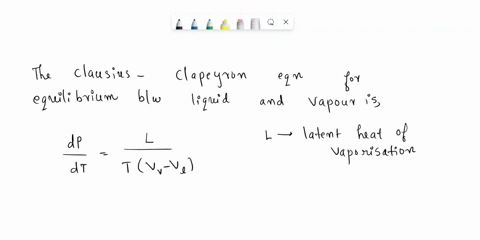 The Clausius - Clapeyron eqn for
equilibrium b/w liquid and vapour is,
dP/dT = L/T(Vv-Vl)
L → latent heat of
vaporisation